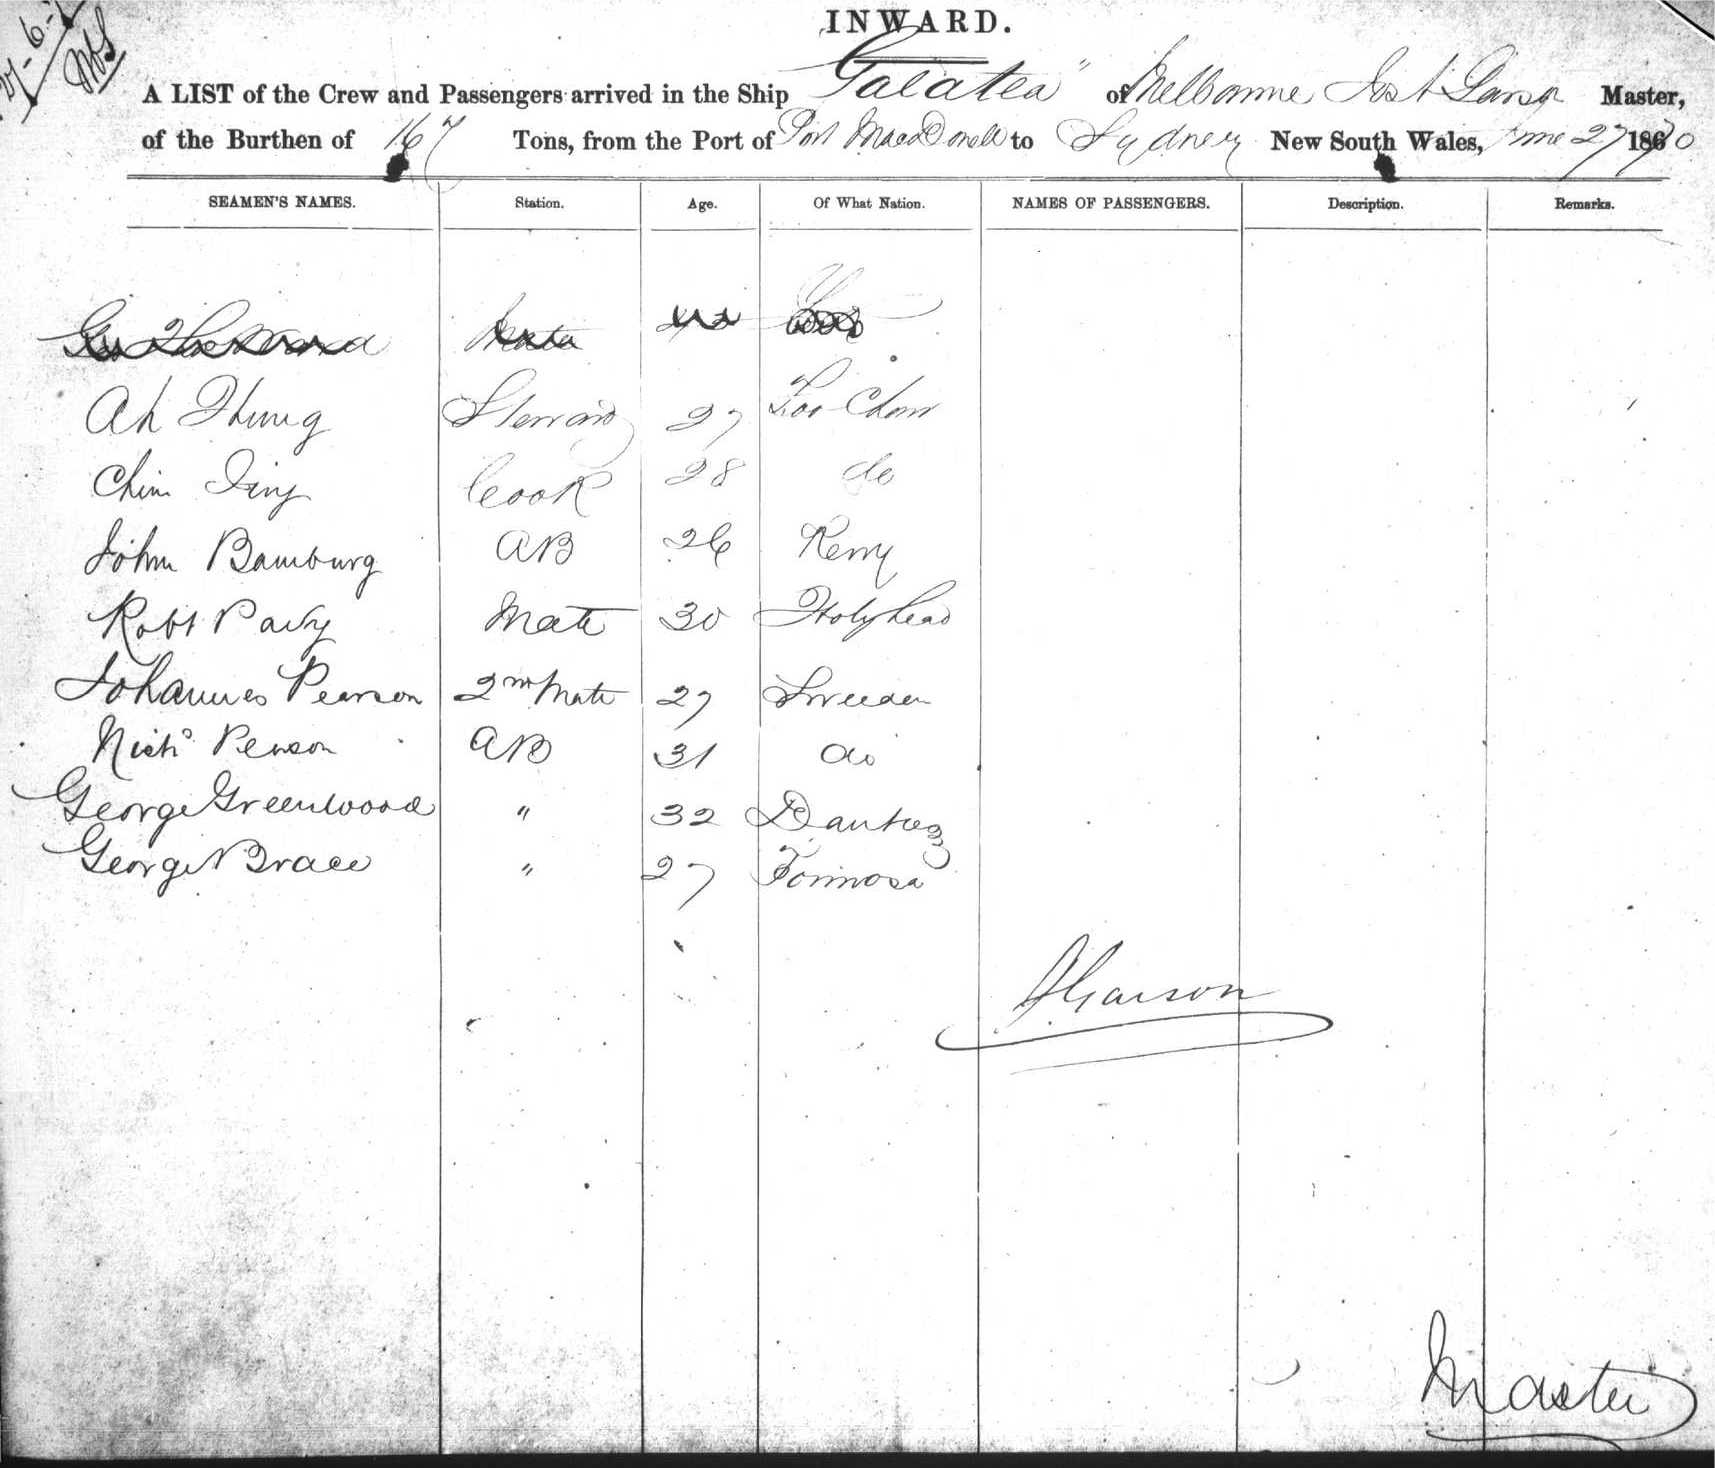 INWARD.
A LIST of the Crew and Passengers arrived in the Ship "Galatea" of Melbourne Master,
of the Burthen of 167 Tons, from the Port of Port MacDonell to Sydney New South Wales, June 27 1870
SEAMEN'S NAMES. Station. Age. Of What Nation. NAMES OF PASSENGERS. Description. Remarks.
Mate
Ah Hung Steward 27 Foo Chow
Chin Cook 28 do
John Bamburg AB 26 Kerry
Robt Parry Mate 30 Holyhead
Johannes Pearson 2nd Mate 27 Sweeden
Nichs Pearson AB 31 do
George Greenwood " 32 Dantzeg
George Brace " 27 Formosa
J Garson
Master